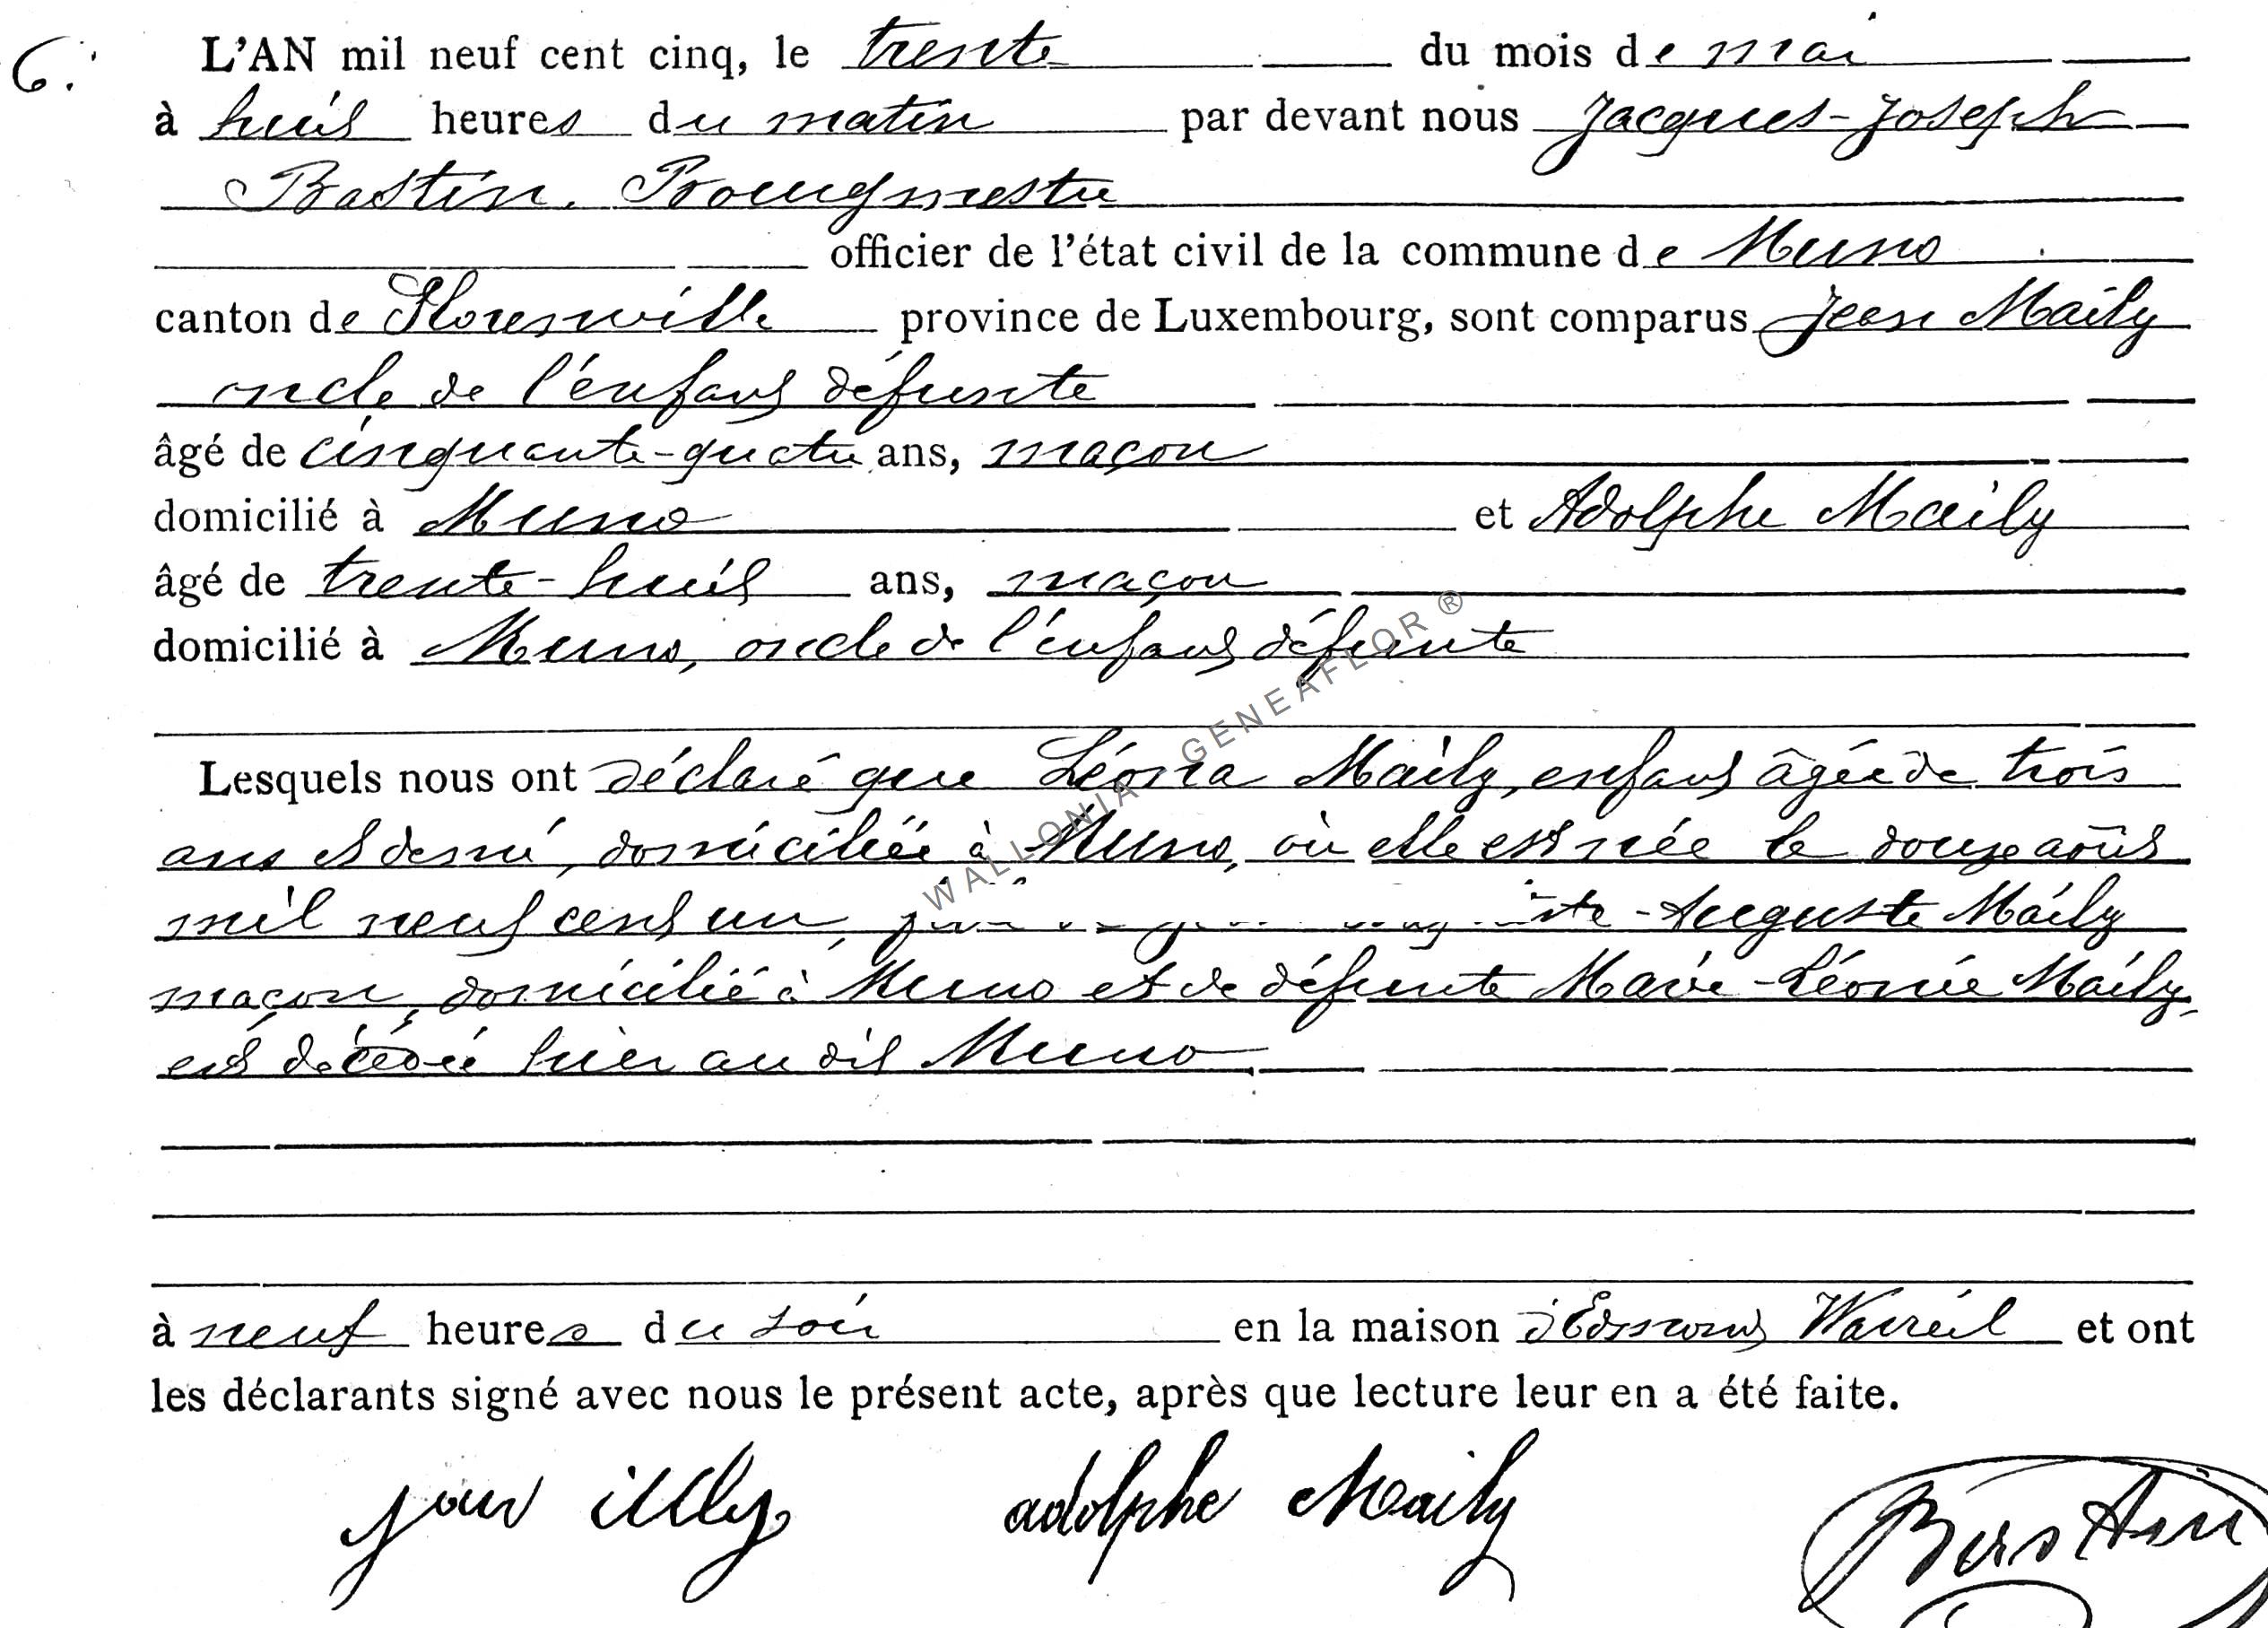 6.
L'AN mil neuf cent cinq, le trente du mois de mai
à huit heures du matin par devant nous Jacques-Joseph
Bastin, Bourgmestre
officier de l'état civil de la commune de Muno
canton de Florenville province de Luxembourg, sont comparus Jean Maily
oncle de l'enfant défunte
âgé de cinquante-quatre ans, maçon
domicilié à Muno et Adolphe Maily
âgé de trente-huit ans, maçon
domicilié à Muno, oncle de l'enfant défunte
Lesquels nous ont déclaré que Léona Maily, enfant âgée de trois
ans et demi, domiciliée à Muno, où elle est née le douze août
mil neuf cent un, -Auguste Maily
maçon, domicilié à Muno et de défunte Marie-Léonie Maily,
est décédée hier au dit Muno
à neuf heures du soir en la maison d'Edmond Warréil et ont
les déclarants signé avec nous le présent acte, après que lecture leur en a été faite.
adolphe Maily Bastin
WALLONIA GENEAFLOR ®